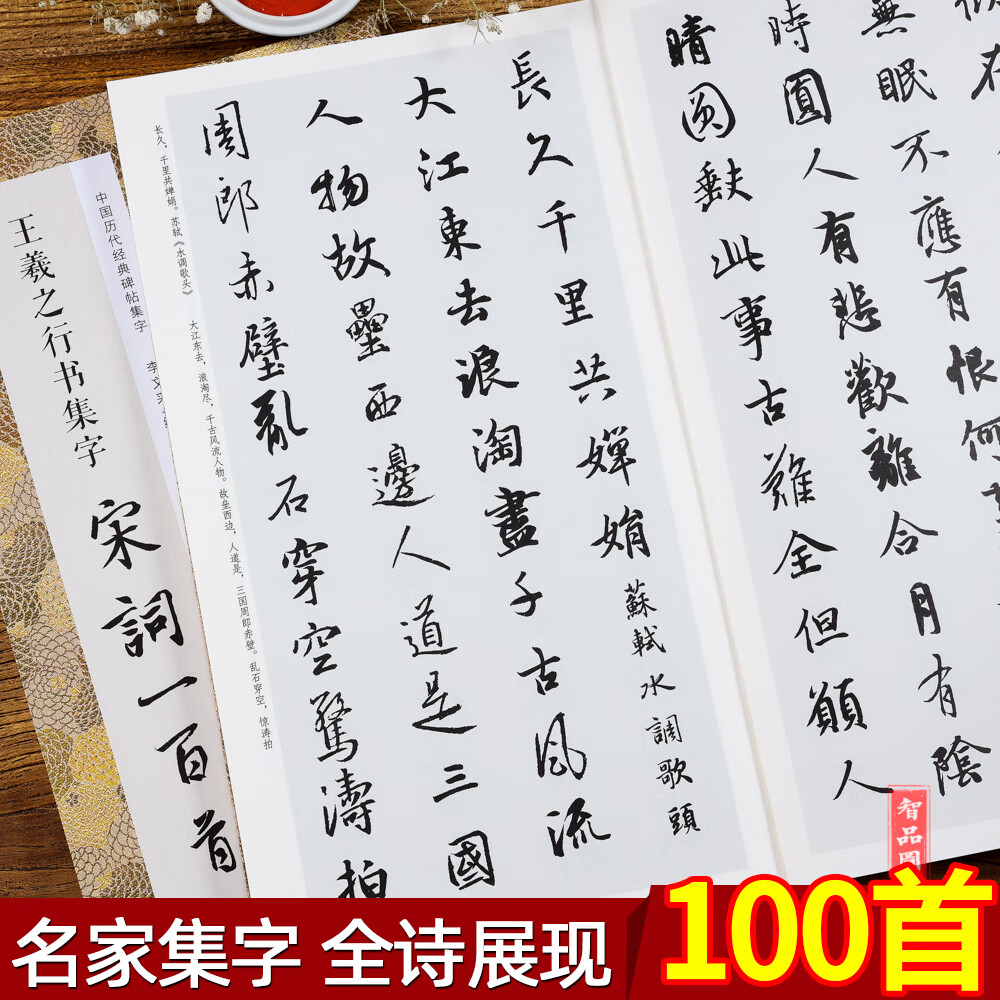 無眠不應有恨何
時圓人有悲歡離合月有陰
晴圓缺此事古難全但願人
長久千里共嬋娟 蘇軾水調歌頭
大江東去浪淘盡千古風流
人物故壘西邊人道是三國
周郎赤壁亂石穿空驚濤拍
长久，千里共婵娟。苏轼《水调歌头》 大江东去，浪淘尽，千古风流人物。故垒西边，人道是，三国周郎赤壁。乱石穿空，惊涛拍
中国历代经典碑帖集字 李文采
王羲之行书集字
宋詞一百首
智品圖
名家集字 全诗展现
100首